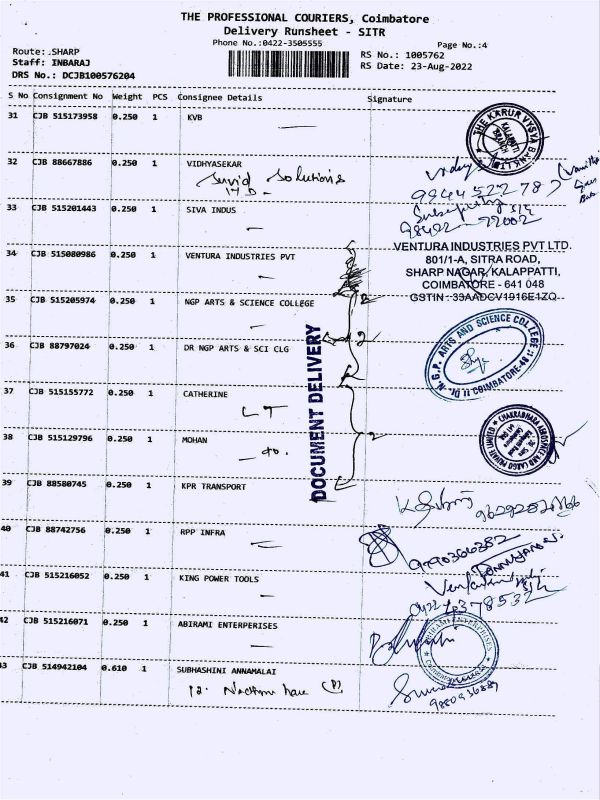 THE PROFESSIONAL COURIERS, Coimbatore
Delivery Runsheet - SITR
Phone No.:0422-3505555
Page No.:4
Route: SHARP
RS No.: 1005762
Staff: INBARAJ
RS Date: 23-Aug-2022
DRS No.: DCJB100576204
S No Consignment No Weight PCS Consignee Details Signature
31 CJB 515173958 0.250 1 KVB
THE KARUR VYSYA BANK LTD
KALAPATTI BRANCH
32 CJB 88667886 0.250 1 VIDHYASEKAR
Solutions
33 CJB 515201443 0.250 1 SIVA INDUS
34 CJB 515080986 0.250 1 VENTURA INDUSTRIES PVT
VENTURA INDUSTRIES PVT LTD.
801/1-A, SITRA ROAD,
SHARP NAGAR, KALAPPATTI,
COIMBATORE - 641 048
GSTIN : 33AADCV1916E1ZQ
35 CJB 515205974 0.250 1 NGP ARTS & SCIENCE COLLEGE
36 CJB 88797024 0.250 1 DR NGP ARTS & SCI CLG
Dr. N.G.P. ARTS AND SCIENCE COLLEGE
COIMBATORE-48
DOCUMENT DELIVERY
37 CJB 515155772 0.250 1 CATHERINE
38 CJB 515129796 0.250 1 MOHAN
CHAKRADHARA AEROSPACE AND CARGO PRIVATE LIMITED
39 CJB 88580745 0.250 1 KPR TRANSPORT
40 CJB 88742756 0.250 1 RPP INFRA
41 CJB 515216052 0.250 1 KING POWER TOOLS
42 CJB 515216071 0.250 1 ABIRAMI ENTERPERISES
43 CJB 514942104 0.610 1 SUBHASHINI ANNAMALAI